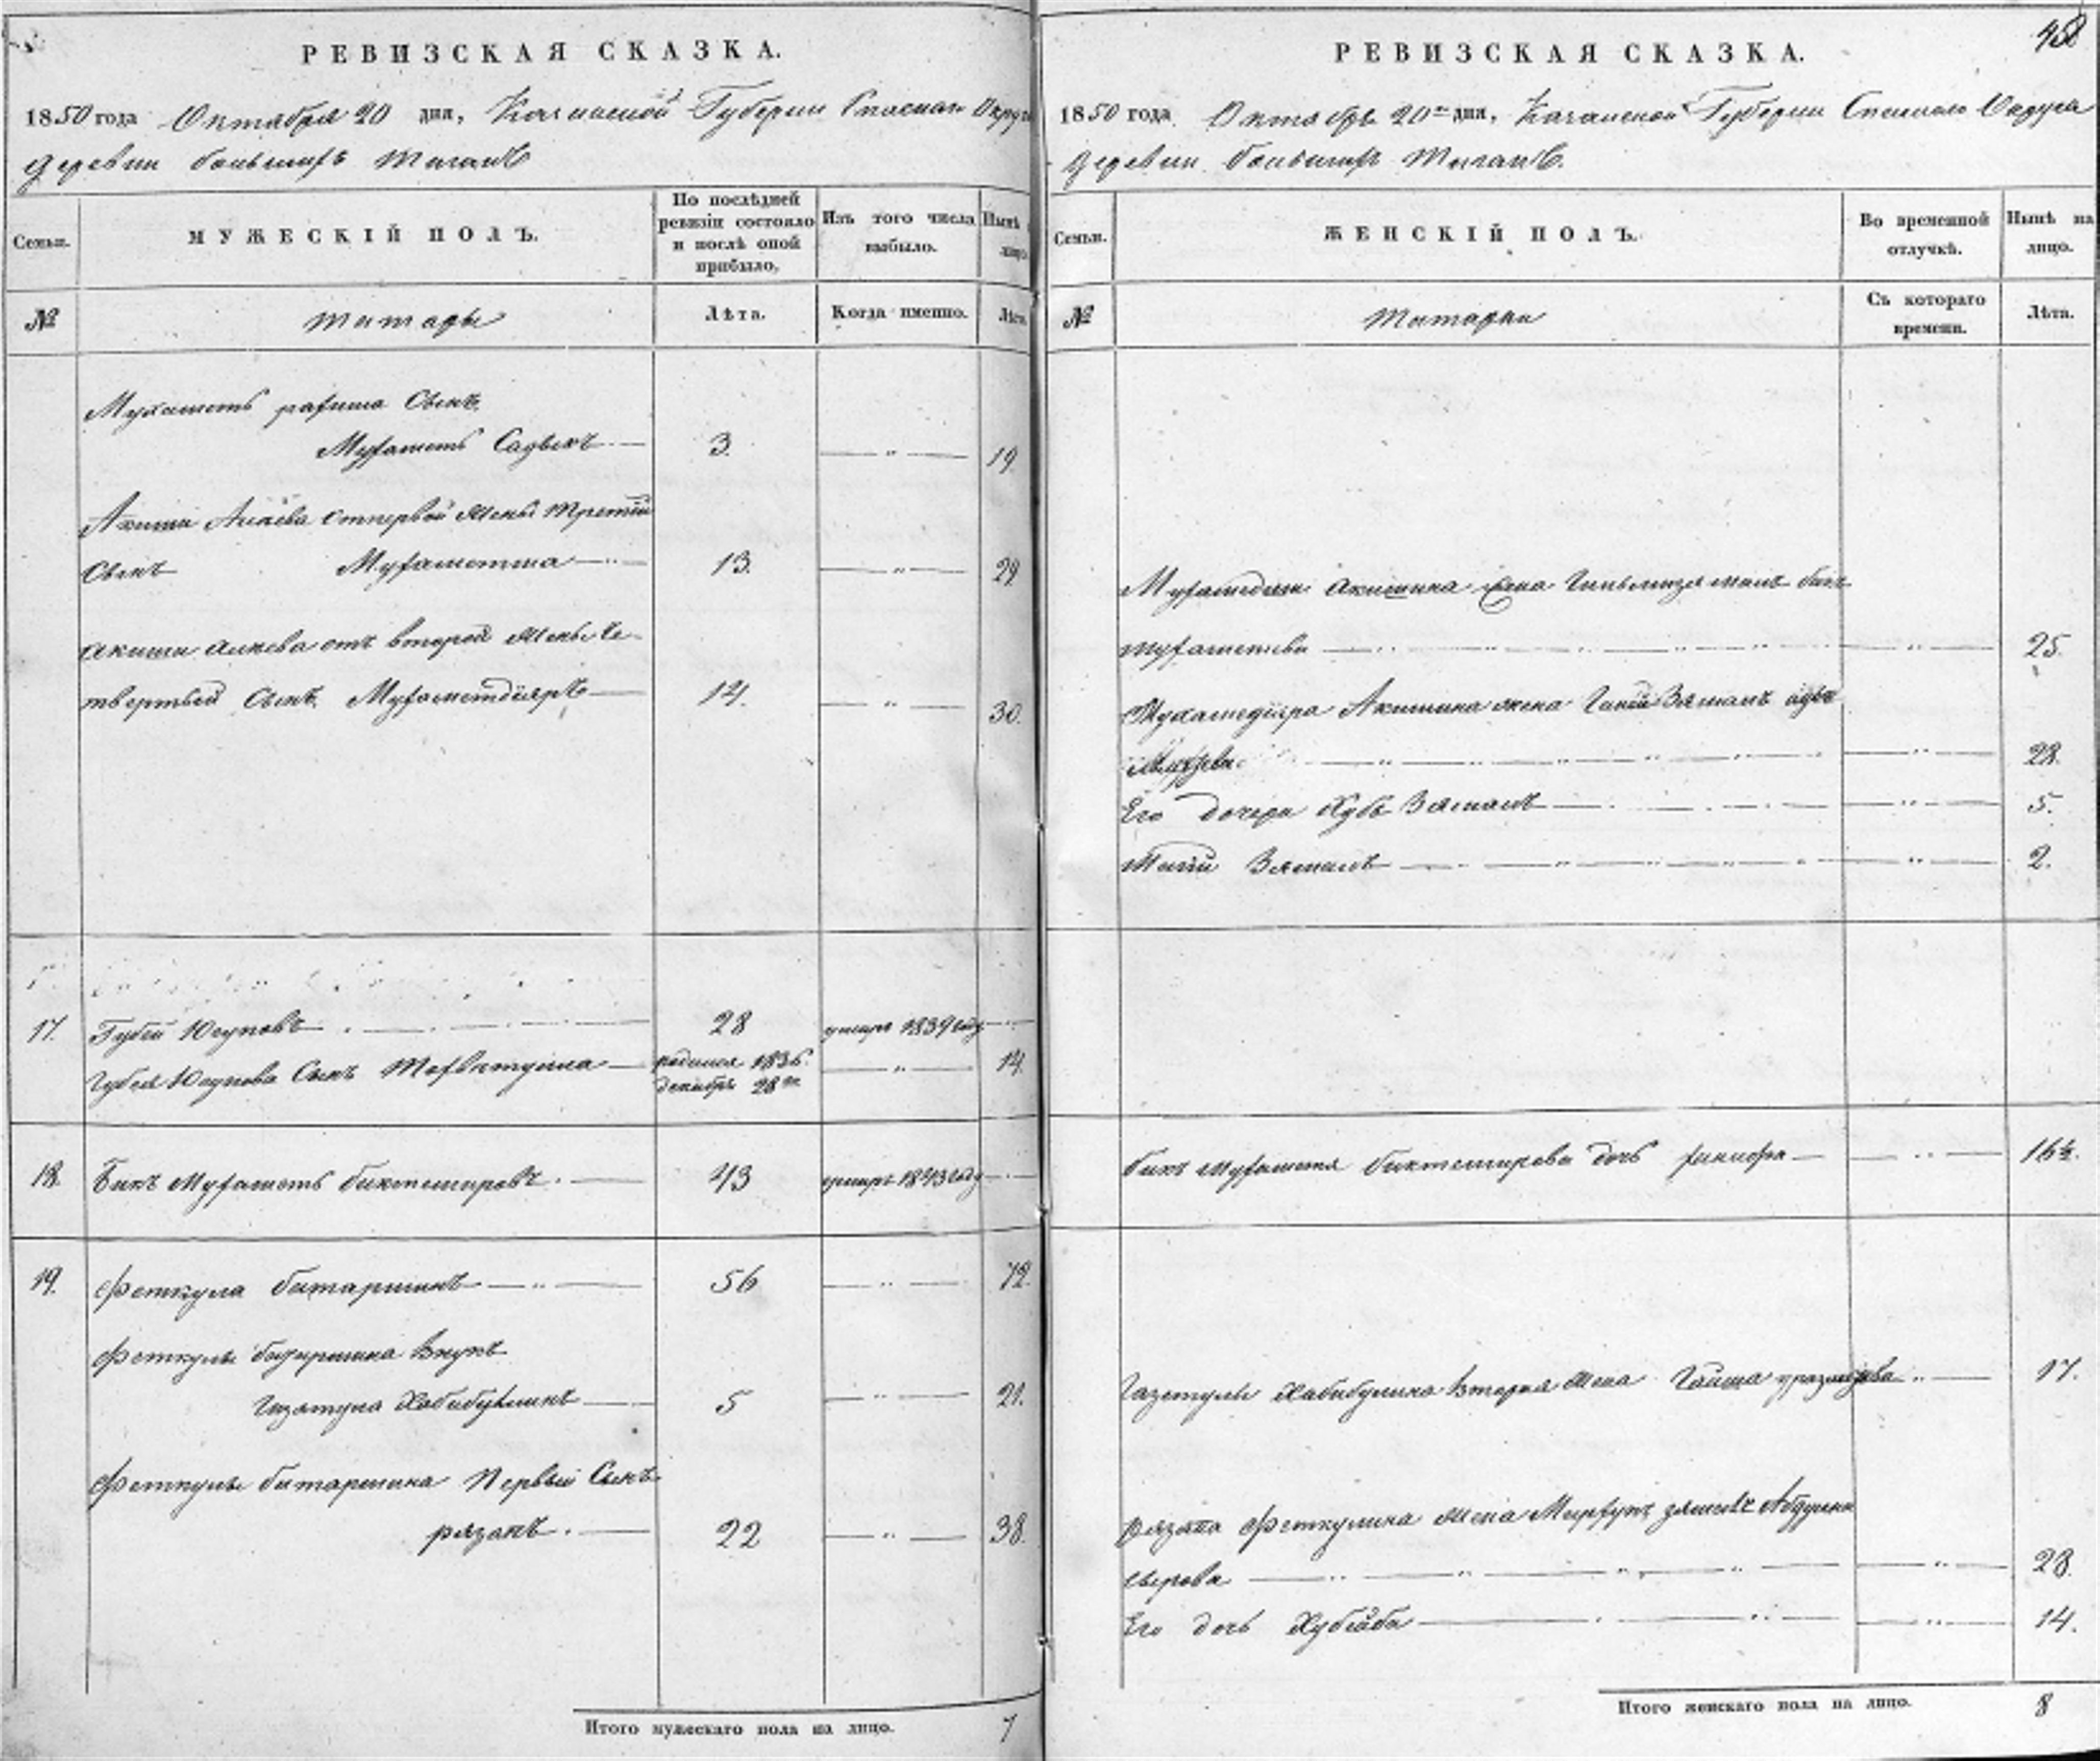 РЕВИЗСКАЯ СКАЗКА.
1850 года Октября 20 дня, Казанской Губернии Спаскаго Округа
Деревни большихъ Тиганъ
Семьи.
МУЖЕСКІЙ ПОЛЪ.
По послѣдней ревизіи состояло и послѣ оной прибыло,
Изъ того числа выбыло.
Нынѣ лицо
№
татары
Лѣта.
Когда именно.
Лѣта
Мухаметь рафика Сынъ
Мухаметь Садыкъ 3. 19.
Акиша Алкева отпервой жены третій
Сынъ Мухаметша 13. 29
Акиша Алкева отъ второй жены че-
твертый Сынъ Мухаметдіяръ 14. 30.
17. Губей Юсуповъ 28 умеръ 1839 году
Губея Юсупова Сынъ Тохватулла родился 1836. 14.
декабря 28го
18. Бикъ Мухаметь биктемировъ 43 умеръ 1843 году
19. Феткула битаршинъ 56 72.
Феткулы битаршина Внукъ
Газетула Хабибулинъ 5 21.
Феткулы битаршина Первый Сынъ
рязапъ 22 38.
Итого мужескаго пола на лицо. 7
РЕВИЗСКАЯ СКАЗКА.
1850 года Октября 20го дня, Казанской Губернии Спаскаго Округа
Деревни большихъ Тиганъ.
Семьи.
ЖЕНСКІЙ ПОЛЪ.
Во временной отлучкѣ.
Нынѣ на лицо.
№
татарки
Съ котораго времени.
Лѣта.
Акишина жена бикъ
мухаметева 25.
Мухамедіяра Акишина жена Заманъ
28.
Его дочери Хубъ Заманъ 5.
Заманъ 2.
бикъ Мухаметя биктемирова дочь 16½.
Газетулы Хабибулина вторая жена Гайша 17.
Рязапа Феткулина жена
28.
Его дочь Хубіаби 14.
Итого женскаго пола на лицо. 8